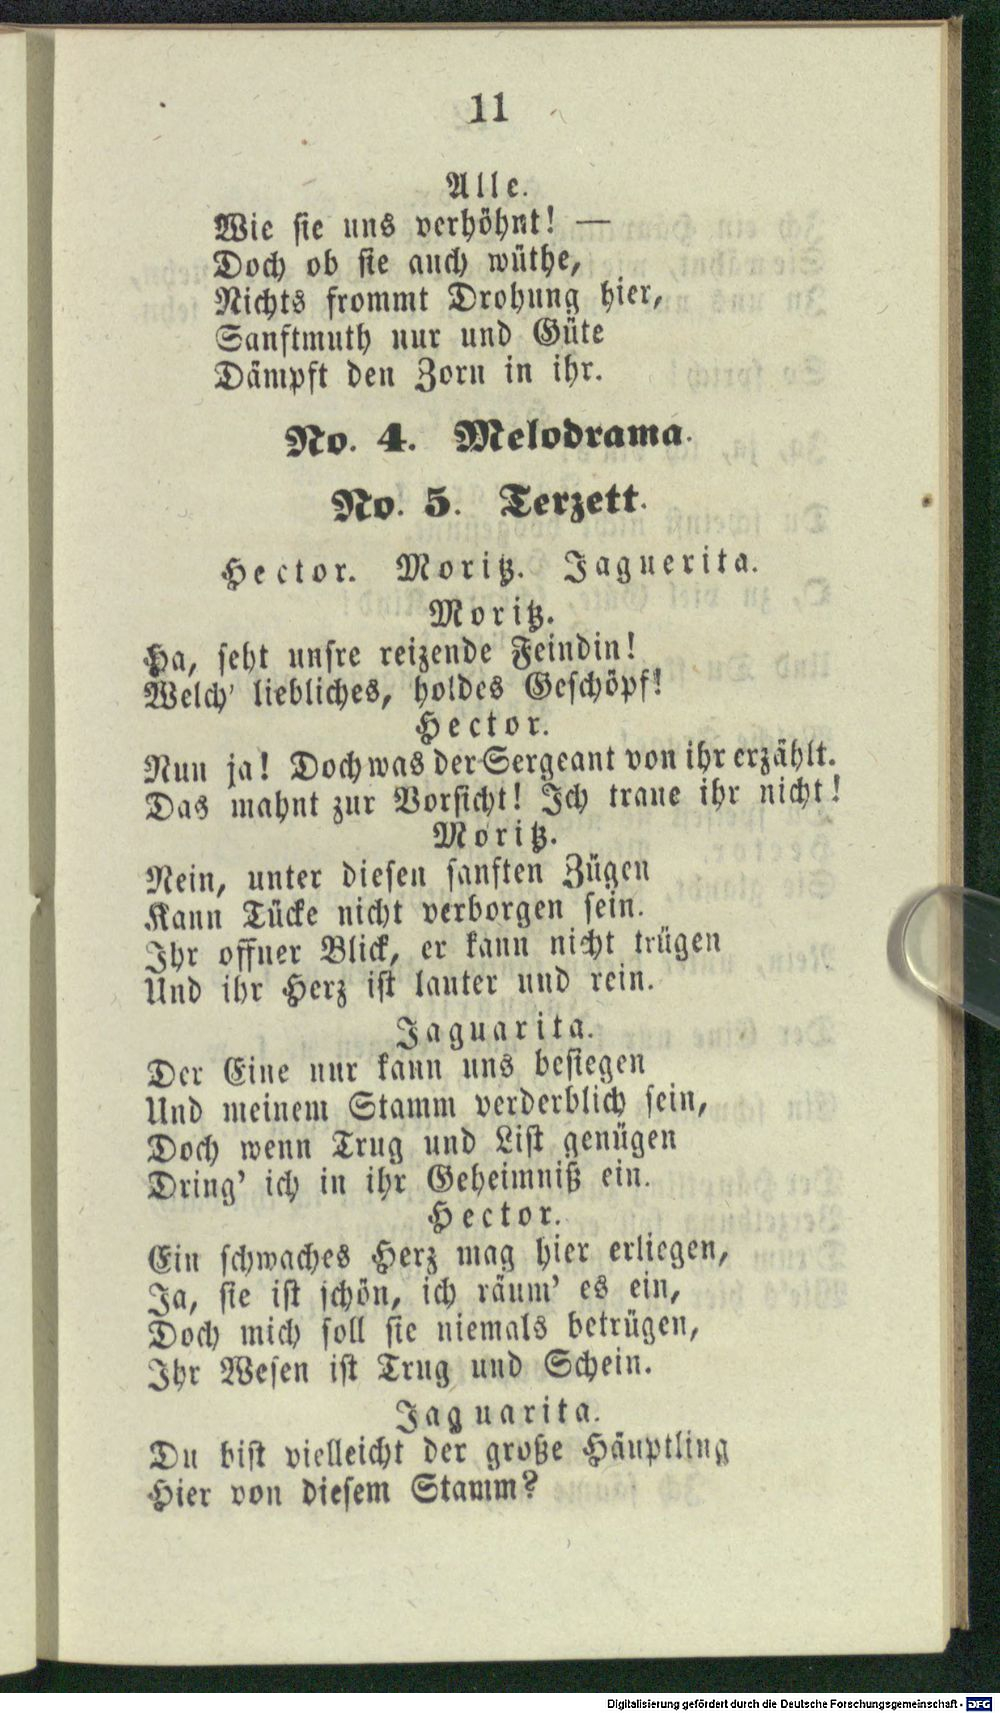 11
Alle.
Wie sie uns verhöhnt! —
Doch ob sie auch wüthe,
Nichts frommt Drohung hier,
Sanftmuth nur und Güte
Dämpft den Zorn in ihr.
No. 4. Melodrama.
No. 5. Terzett.
Hector. Moritz. Jaguerita.
Moritz.
Ha, seht unsre reizende Feindin!
Welch' liebliches, holdes Geschöpf!
Hector.
Nun ja! Doch was der Sergeant von ihr erzählt.
Das mahnt zur Vorsicht! Ich traue ihr nicht!
Moritz.
Nein, unter diesen sanften Zügen
Kann Tücke nicht verborgen sein.
Ihr offner Blick, er kann nicht trügen
Und ihr Herz ist lauter und rein.
Jaguarita.
Der Eine nur kann uns besiegen
Und meinem Stamm verderblich sein,
Doch wenn Trug und List genügen
Dring' ich in ihr Geheimniß ein.
Hector.
Ein schwaches Herz mag hier erliegen,
Ja, sie ist schön, ich räum' es ein,
Doch mich soll sie niemals betrügen,
Ihr Wesen ist Trug und Schein.
Jaguarita.
Du bist vielleicht der große Häuptling
Hier von diesem Stamm?
Digitalisierung gefördert durch die Deutsche Forschungsgemeinschaft - DFG